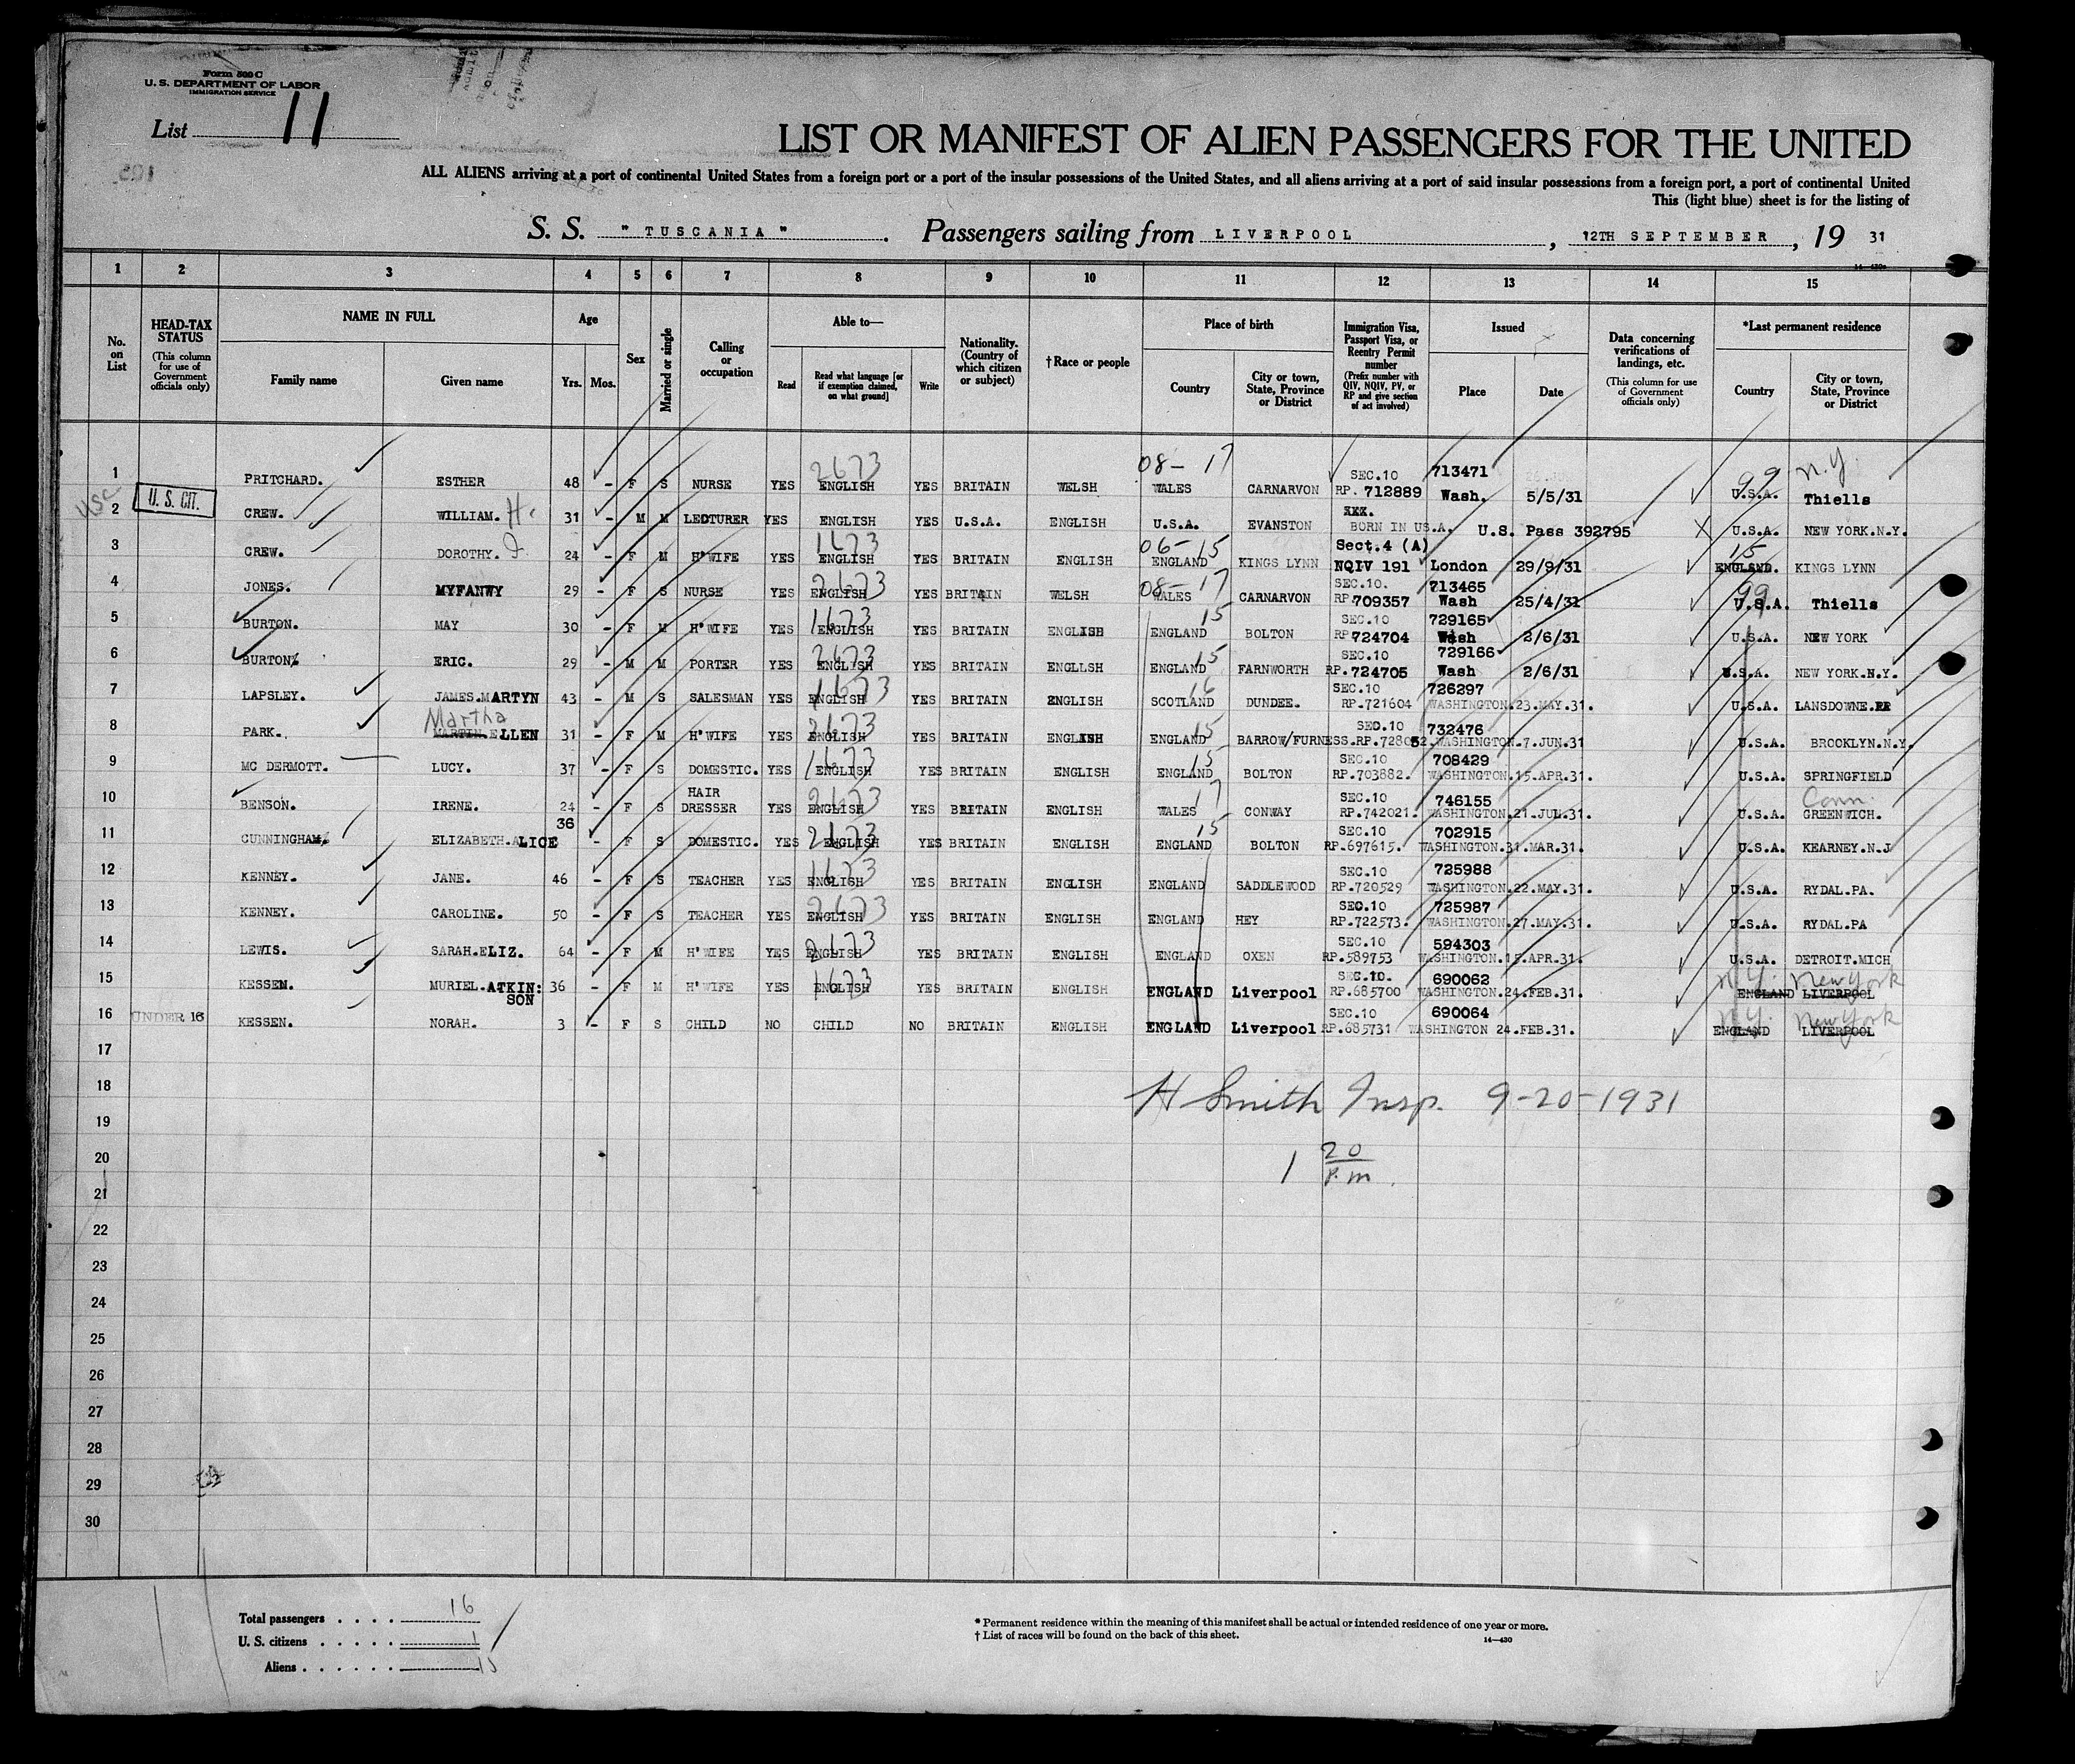 Form 500 C
U. S. DEPARTMENT OF LABOR
IMMIGRATION SERVICE
List 11
LIST OR MANIFEST OF ALIEN PASSENGERS FOR THE UNITED
ALL ALIENS arriving at a port of continental United States from a foreign port or a port of the insular possessions of the United States, and all aliens arriving at a port of said insular possessions from a foreign port, a port of continental United
This (light blue) sheet is for the listing of
S. S. "TUSCANIA". Passengers sailing from LIVERPOOL, 12TH SEPTEMBER, 19 31
1 2 3 4 5 6 7 8 9 10 11 12 13 14 15
No. on List
HEAD-TAX STATUS (This column for use of Government officials only)
NAME IN FULL
Family name
Given name
Age
Yrs. Mos.
Sex
Married or single
Calling or occupation
Able to—
Read
Read what language [or if exemption claimed, on what ground]
Write
Nationality. (Country of which citizen or subject)
†Race or people
Place of birth
Country
City or town, State, Province or District
Immigration Visa, Passport Visa, or Reentry Permit number (Prefix number with QIV, NQIV, PV, or RP and give section of act involved)
Issued
Place
Date
Data concerning verifications of landings, etc. (This column for use of Government officials only)
*Last permanent residence
Country
City or town, State, Province or District
1 PRITCHARD. ESTHER 48 - F S NURSE YES 2673 ENGLISH YES BRITAIN WELSH 08-17 WALES CARNARVON SEC.10 RP. 712889 713471 Wash. 5/5/31 99 U.S.A. N.Y. Thiells
2 USC U. S. CIT. CREW. WILLIAM. H. 31 - M M LECTURER YES ENGLISH YES U.S.A. ENGLISH U.S.A. EVANSTON XXX. BORN IN US.A. U.S. Pass 392795 X U.S.A. NEW YORK.N.Y.
3 CREW. DOROTHY. 24 - F M H'WIFE YES 1673 ENGLISH YES BRITAIN ENGLISH 06-15 ENGLAND KINGS LYNN Sect.4 (A) NQIV 191 London 29/9/31 15 ENGLAND. KINGS LYNN
4 JONES. MYFANWY 29 - F S NURSE YES 2673 ENGLISH YES BRITAIN WELSH 08-17 WALES CARNARVON SEC.10. RP 709357 713465 Wash 25/4/31 99 U.S.A. Thiells
5 BURTON. MAY 30 - F M H'WIFE YES 1673 ENGLISH YES BRITAIN ENGLISH 15 ENGLAND BOLTON SEC.10 RP 724704 729165 Wash 2/6/31 U.S.A. NEW YORK
6 BURTON. ERIC. 29 - M M PORTER YES 2673 ENGLISH YES BRITAIN ENGLLSH 15 ENGLAND FARNWORTH SEC.10 RP. 724705 729166 Wash 2/6/31 U.S.A. NEW YORK.N.Y.
7 LAPSLEY. JAMES.MARTYN 43 - M S SALESMAN YES 1673 ENGLISH YES BRITAIN ENGLISH 16 SCOTLAND DUNDEE. SEC.10 RP.721604 726297 WASHINGTON.23.MAY.31. U.S.A. LANSDOWNE.
8 PARK. Martha MARTIN.ELLEN 31 - F M H'WIFE YES 2673 ENGLISH YES BRITAIN ENGLISH 15 ENGLAND BARROW/FURNESS. SEC.10 RP.728052. 732476 WASHINGTON.7.JUN.31 U.S.A. BROOKLYN.N.Y.
9 MC DERMOTT. LUCY. 37 - F S DOMESTIC. YES 1673 ENGLISH YES BRITAIN ENGLISH 15 ENGLAND BOLTON SEC.10 RP.703882. 708429 WASHINGTON.15.APR.31. U.S.A. SPRINGFIELD
10 BENSON. IRENE. 24 - F S HAIR DRESSER YES 2673 ENGLISH YES BRITAIN ENGLISH 17 WALES CONWAY SEC.10 RP.742021. 746155 WASHINGTON.21.JUL.31. U.S.A. Conn. GREENWICH.
11 CUNNINGHAM. ELIZABETH.ALICE 36 - F S DOMESTIC. YES 2673 ENGLISH YES BRITAIN ENGLISH 15 ENGLAND BOLTON SEC.10 RP.697615. 702915 WASHINGTON.31.MAR.31. U.S.A. KEARNEY.N.J
12 KENNEY. JANE. 46 - F S TEACHER YES 1673 ENGLISH YES BRITAIN ENGLISH ENGLAND SADDLEWOOD SEC.10 RP.720529 725988 WASHINGTON.22.MAY.31. U.S.A. RYDAL.PA.
13 KENNEY. CAROLINE. 50 - F S TEACHER YES 2673 ENGLISH YES BRITAIN ENGLISH ENGLAND HEY SEC.10 RP.722573. 725987 WASHINGTON.27.MAY.31. U.S.A. RYDAL.PA
14 LEWIS. SARAH.ELIZ. 64 - F M H'WIFE YES 2673 ENGLISH YES BRITAIN ENGLISH ENGLAND OXEN SEC.10 RP.589753 594303 WASHINGTON.15.APR.31. U.S.A. DETROIT.MICH
15 KESSEN. MURIEL.ATKIN: SON 36 - F M H'WIFE YES 1673 ENGLISH YES BRITAIN ENGLISH ENGLAND Liverpool SEC.10. RP.685700 690062 WASHINGTON.24.FEB.31. N.Y. New York ENGLAND LIVERPOOL
16 UNDER 16 KESSEN. NORAH. 3 - F S CHILD NO CHILD NO BRITAIN ENGLISH ENGLAND Liverpool SEC.10 RP.685731 690064 WASHINGTON 24.FEB.31. N.Y. New York ENGLAND LIVERPOOL
17
18 H Smith Insp. 9-20-1931
19
20 1 20 P.m.
21
22
23
24
25
26
27
28
29
30
Total passengers . . . . 16
U. S. citizens . . . . . 1
Aliens . . . . . . 15
* Permanent residence within the meaning of this manifest shall be actual or intended residence of one year or more.
† List of races will be found on the back of this sheet.
14—430